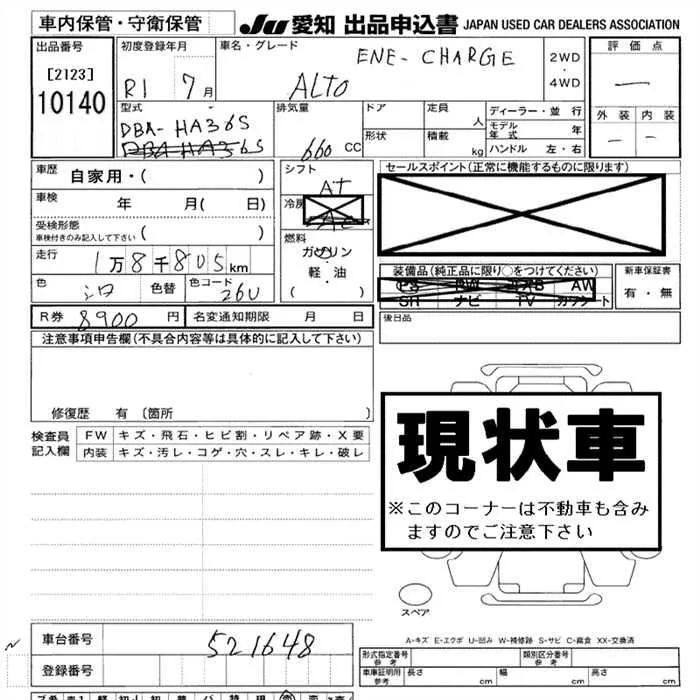 車内保管・守衛保管
JU 愛知 出品申込書 JAPAN USED CAR DEALERS ASSOCIATION
出品番号
[2123]
10140
初度登録年月
R1 7月
車名・グレード
ALTO
ENE-CHARGE
2WD
・
4WD
評価点
—
外装 内装
— —
型式
DBA-HA36S
DBA-HA36S
排気量
660 CC
ドア
定員
人
形状
積載
kg
ディーラー・並行
モデル年式 年
ハンドル 左・右
車歴
自家用・( )
車検
年 月( 日)
受検形態
車検付きのみ記入して下さい ( )
走行
1万8千805km
色
シロ
色替
色コード
26U
シフト
AT
冷房
AAC
燃料
ガソリン
軽・油
( )
セールスポイント(正常に機能するものに限ります)
装備品(純正品に限り○をつけてください)
PS PW エアB AW
SR ナビ TV カワシート
新車保証書
有・無
R券 8900 円
名変通知期限 月 日
後日品
注意事項申告欄(不具合内容等は具体的に記入して下さい)
修復歴 有 〔箇所
検査員
記入欄
FW キズ・飛石・ヒビ割・リペア跡・X要
内装 キズ・汚レ・コゲ・穴・スレ・キレ・破レ
現状車
※このコーナーは不動車も含み
ますのでご注意下さい
スペア
A-キズ E-エクボ U-凹み W-補修跡 S-サビ C-腐食 XX-交換済
車台番号
521648
登録番号
型式指定番号
参考
類別区分番号
参考
車庫証明用
参考
長さ cm
幅 cm
高さ cm